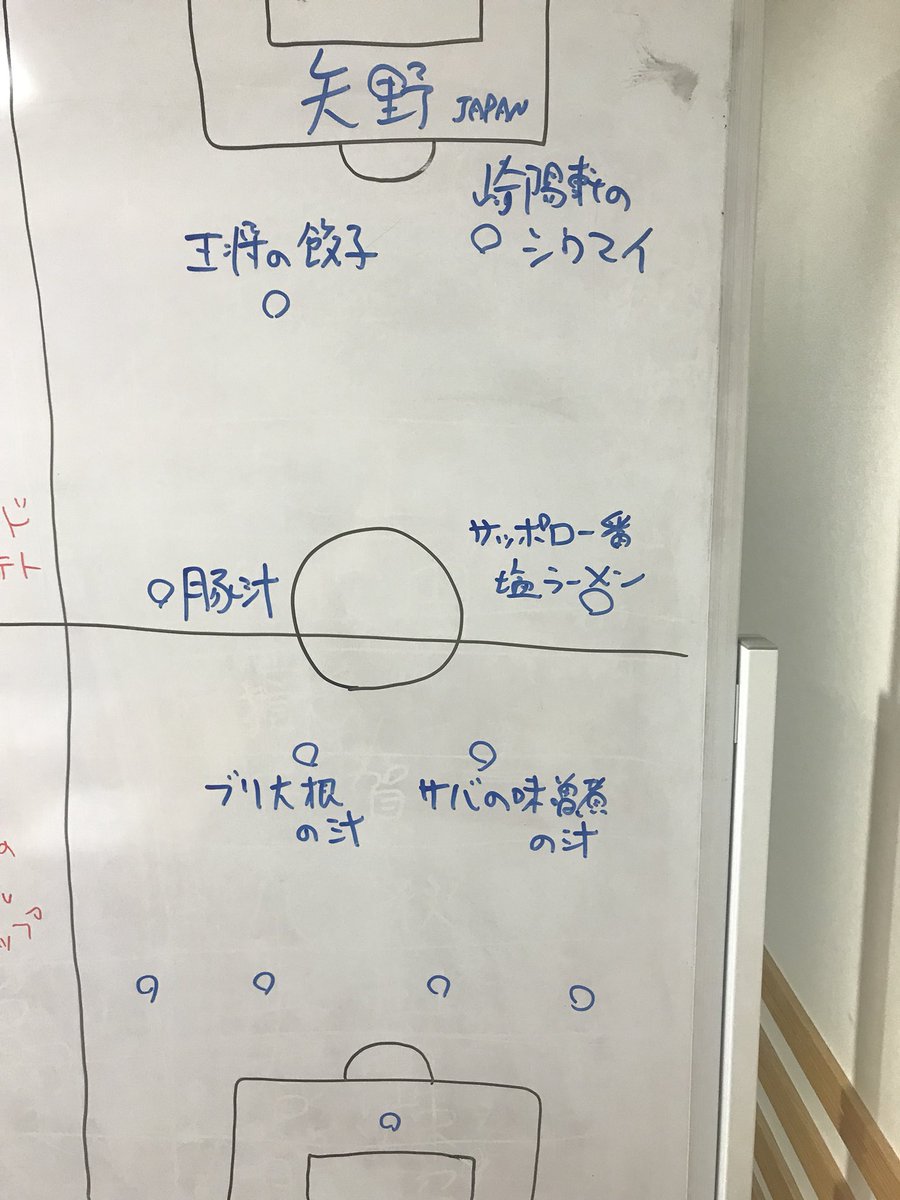 矢野 JAPAN
崎陽軒の
シウマイ
王将の餃子
サッポロ一番
塩ラーメン
豚汁
ブリ大根
の汁
サバの味噌煮
の汁